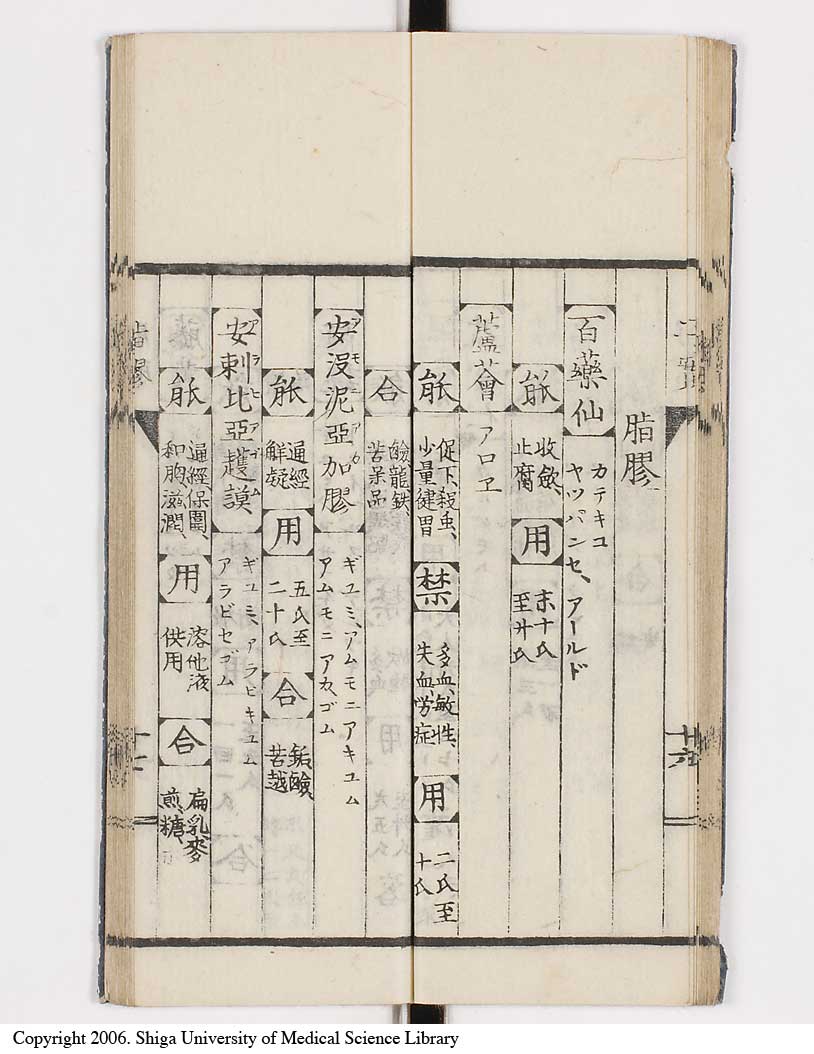 脂膠
百藥仙
カテキコ
ヤツパンセ、アールド
能
收斂、
止腐
用
末十氏
至廿氏
蘆薈
アロヱ
能
促下、殺虫、
少量健胃
禁
多血、敏性、
失血、労症
用
二氏至
十氏
合
鹼、龍、鉄、
苦呆品
安没泥亜加膠
アモニアカ
ギユミ、アムモニアキユム
アムモニアカ、ゴム
能
通經
解凝
用
五氏至
二十氏
合
鋸、鹼、
苦越
安剌比亞護謨
アラヒアゴム
ギユミ、アラビキユム
アラビセゴム
能
逼經、保圍、
和胸、滋潤、
用
溶他液
供用
合
扁、乳、麥、
煎、糖、
脂膠
十六
十七
Copyright 2006. Shiga University of Medical Science Library